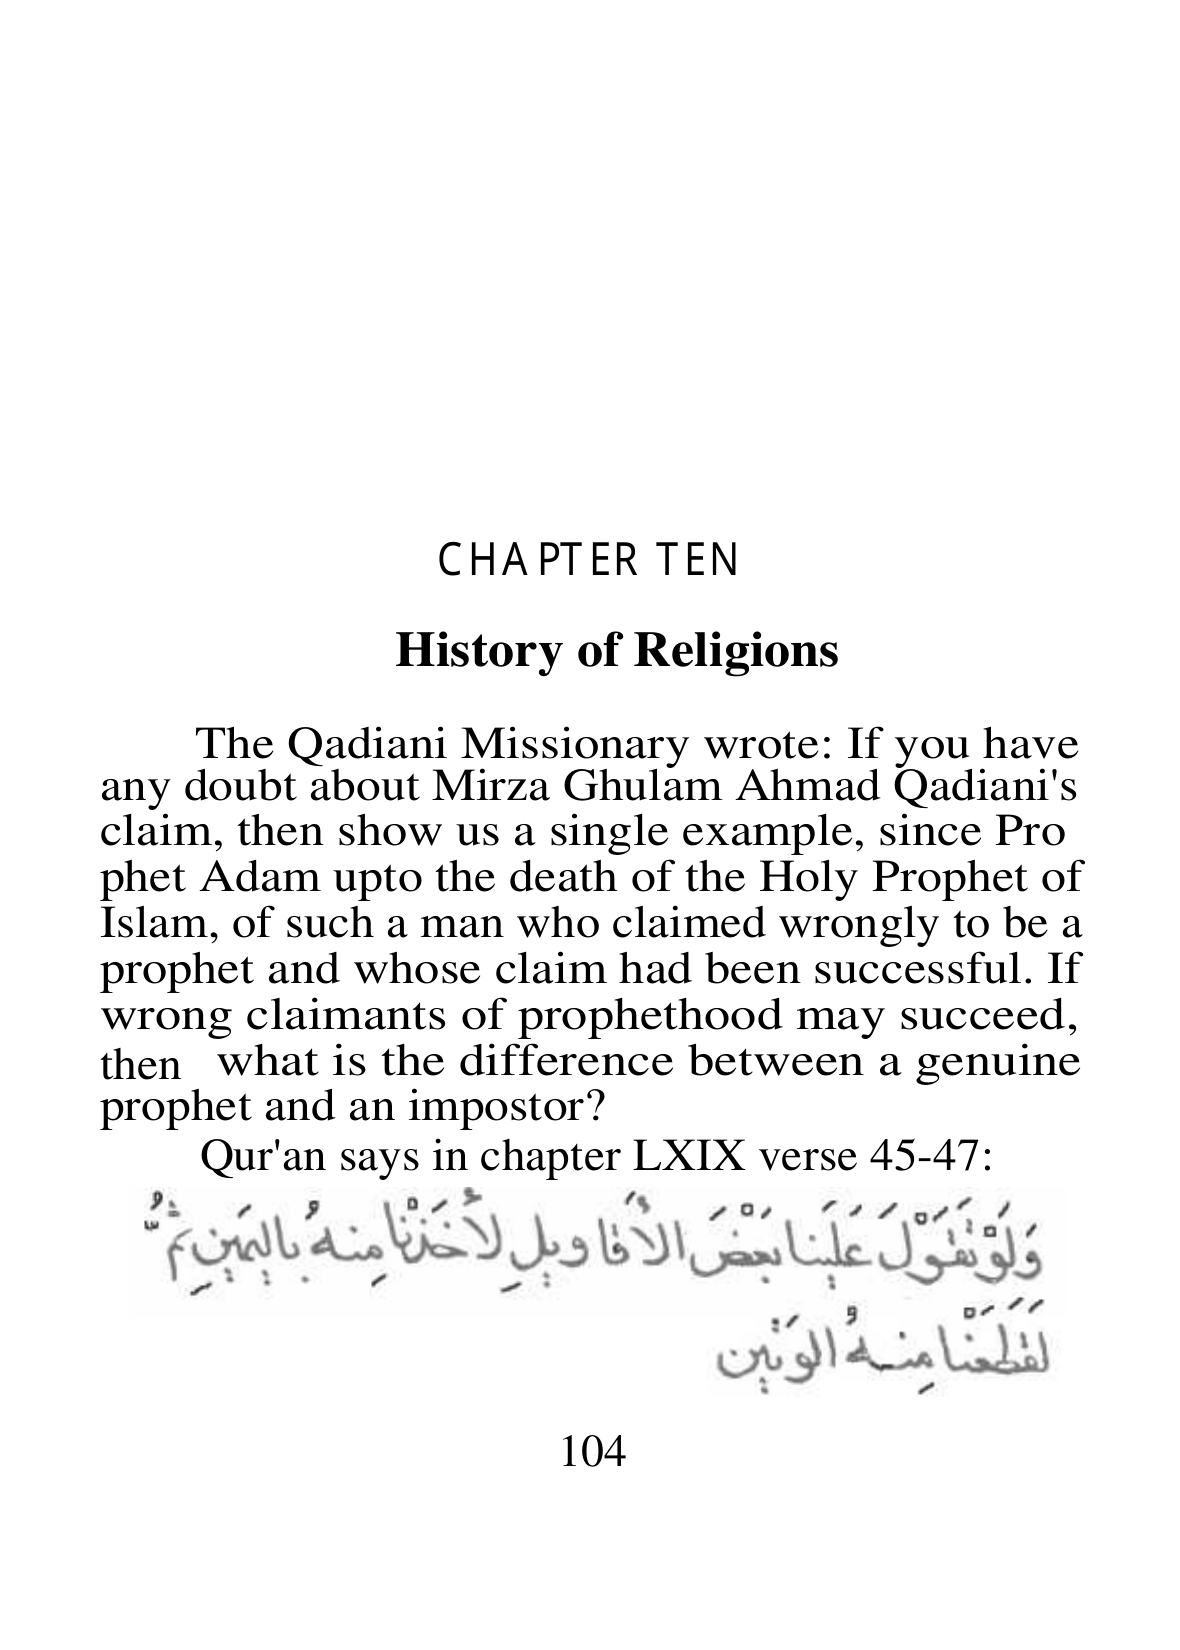 CHAPTER TEN
History of Religions
The Qadiani Missionary wrote: If you have
any doubt about Mirza Ghulam Ahmad Qadiani's
claim, then show us a single example, since Pro
phet Adam upto the death of the Holy Prophet of
Islam, of such a man who claimed wrongly to be a
prophet and whose claim had been successful. If
wrong claimants of prophethood may succeed,
then what is the difference between a genuine
prophet and an impostor?
Qur'an says in chapter LXIX verse 45-47:
وَلَوْ تَقَوَّلَ عَلَيْنَا بَعْضَ الْأَقَاوِيلِ لَأَخَذْنَا مِنْهُ بِالْيَمِينِ ثُمَّ
لَقَطَعْنَا مِنْهُ الْوَتِينَ
104